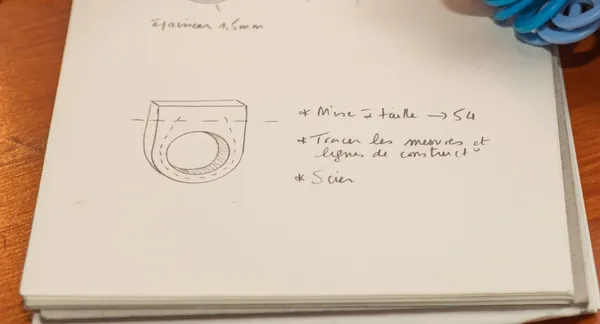 épaisseur 1,5mm
* Mise à taille → 54
* Tracer les mesures et
lignes de construct°
* Scier